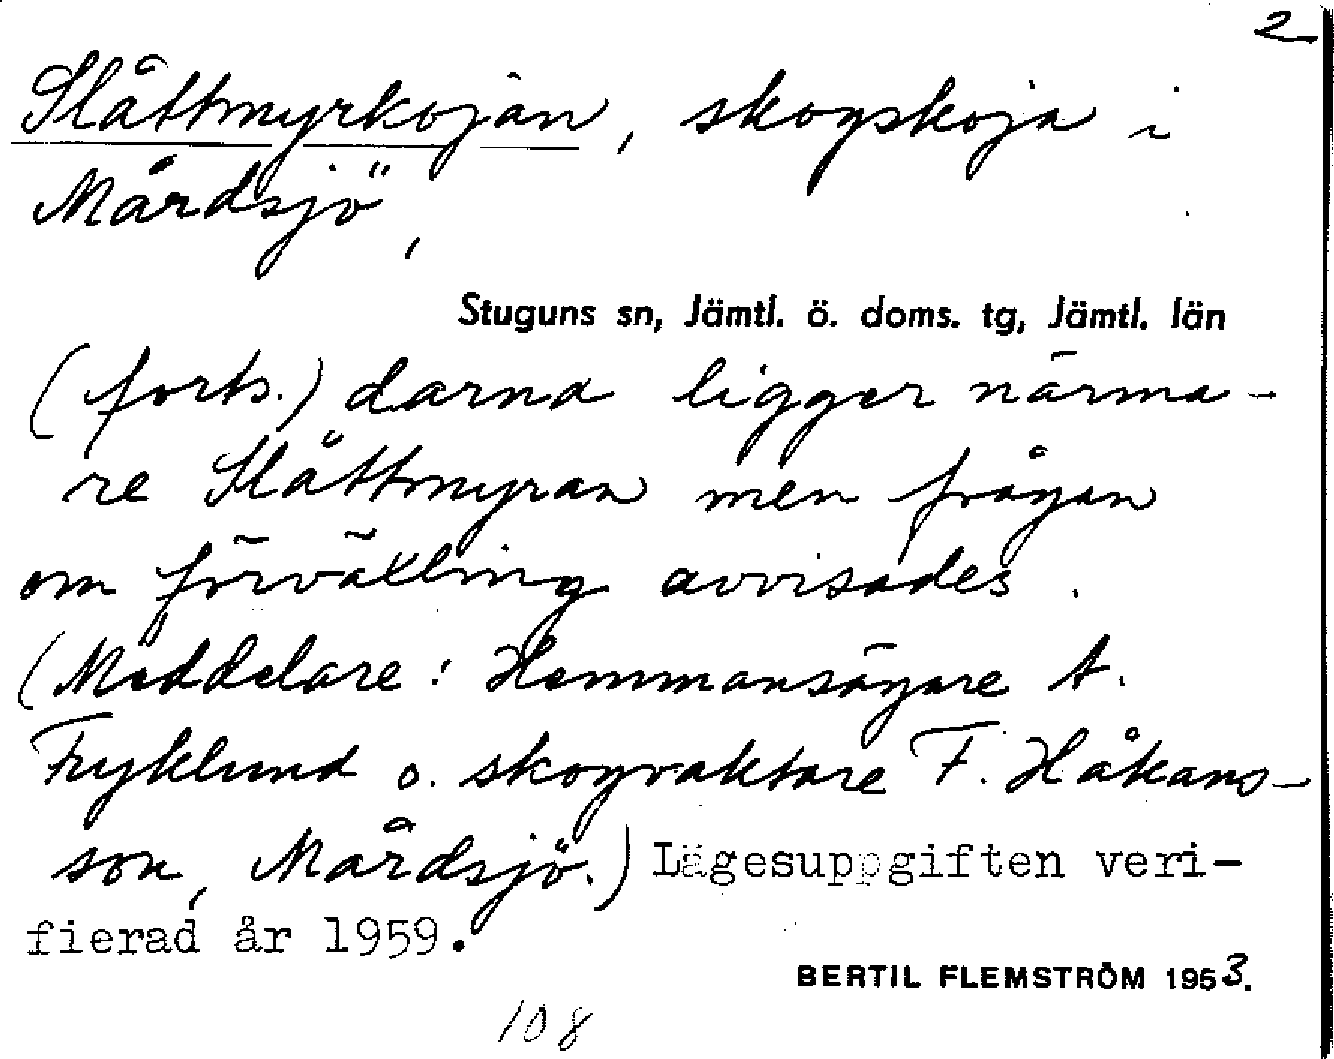 2
Slåttmyrkojan, skogskoja i
Mårdsjö,
Stuguns sn, Jämtl. ö. doms. tg, Jämtl. län
(forts.) darna ligger närma-
re Slåttmyran men frågan
om förväxling avvisades.
(Meddelare: Hemmansägare A.
Fryklund o. skogvaktare F. Håkans-
son, Mårdsjö.) Lägesuppgiften veri-
fierad år 1959.
BERTIL FLEMSTRÖM 1953.
108